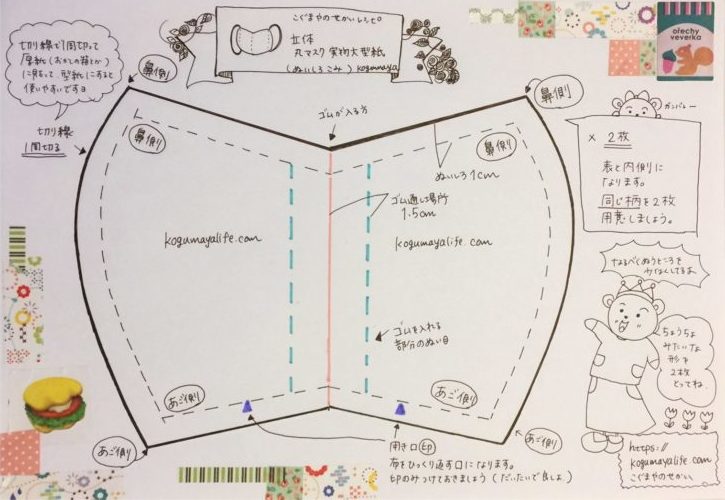 こぐまやのせかいレシピ
立体
丸マスク実物大型紙
(ぬいしろこみ) kogumaya
切り線で1周切って
使いやすいですヨ
切り線
1周切る
鼻側
ゴムが入る方
鼻側
ořechy
veverka
ガンバレー
× 2枚
表と内側に
なります。
同じ柄を2枚
用意しましょう。
鼻側
鼻側
ぬいしろ1cm
ゴム通し場所
1.5cm
kogumayalife.com
kogumayalife.com
ゴムを入れる
部分のぬい目
なるべくぬうところを
少なくしてるよ
ちょうちょ
みたいな
形を
2枚
とってね
あご側
あご側
あご側
あご側
開き口 EP
布をひっくり返す口になります。
印のみつけておきましょう (だいたいで良しよ)
https://
kogumayalife.com
こぐまやのせかい